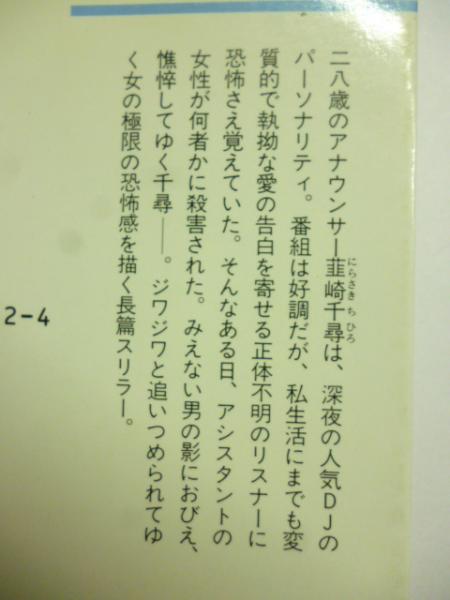 二八歳のアナウンサー韮崎千尋は、深夜の人気DJの
にらさきちひろ
パーソナリティ。番組は好調だが、私生活にまでも変
質的で執拗な愛の告白を寄せる正体不明のリスナーに
恐怖さえ覚えていた。そんなある日、アシスタントの
女性が何者かに殺害された。みえない男の影におびえ、
憔悴してゆく千尋——。ジワジワと追いつめられてゆ
く女の極限の恐怖感を描く長篇スリラー。
2-4